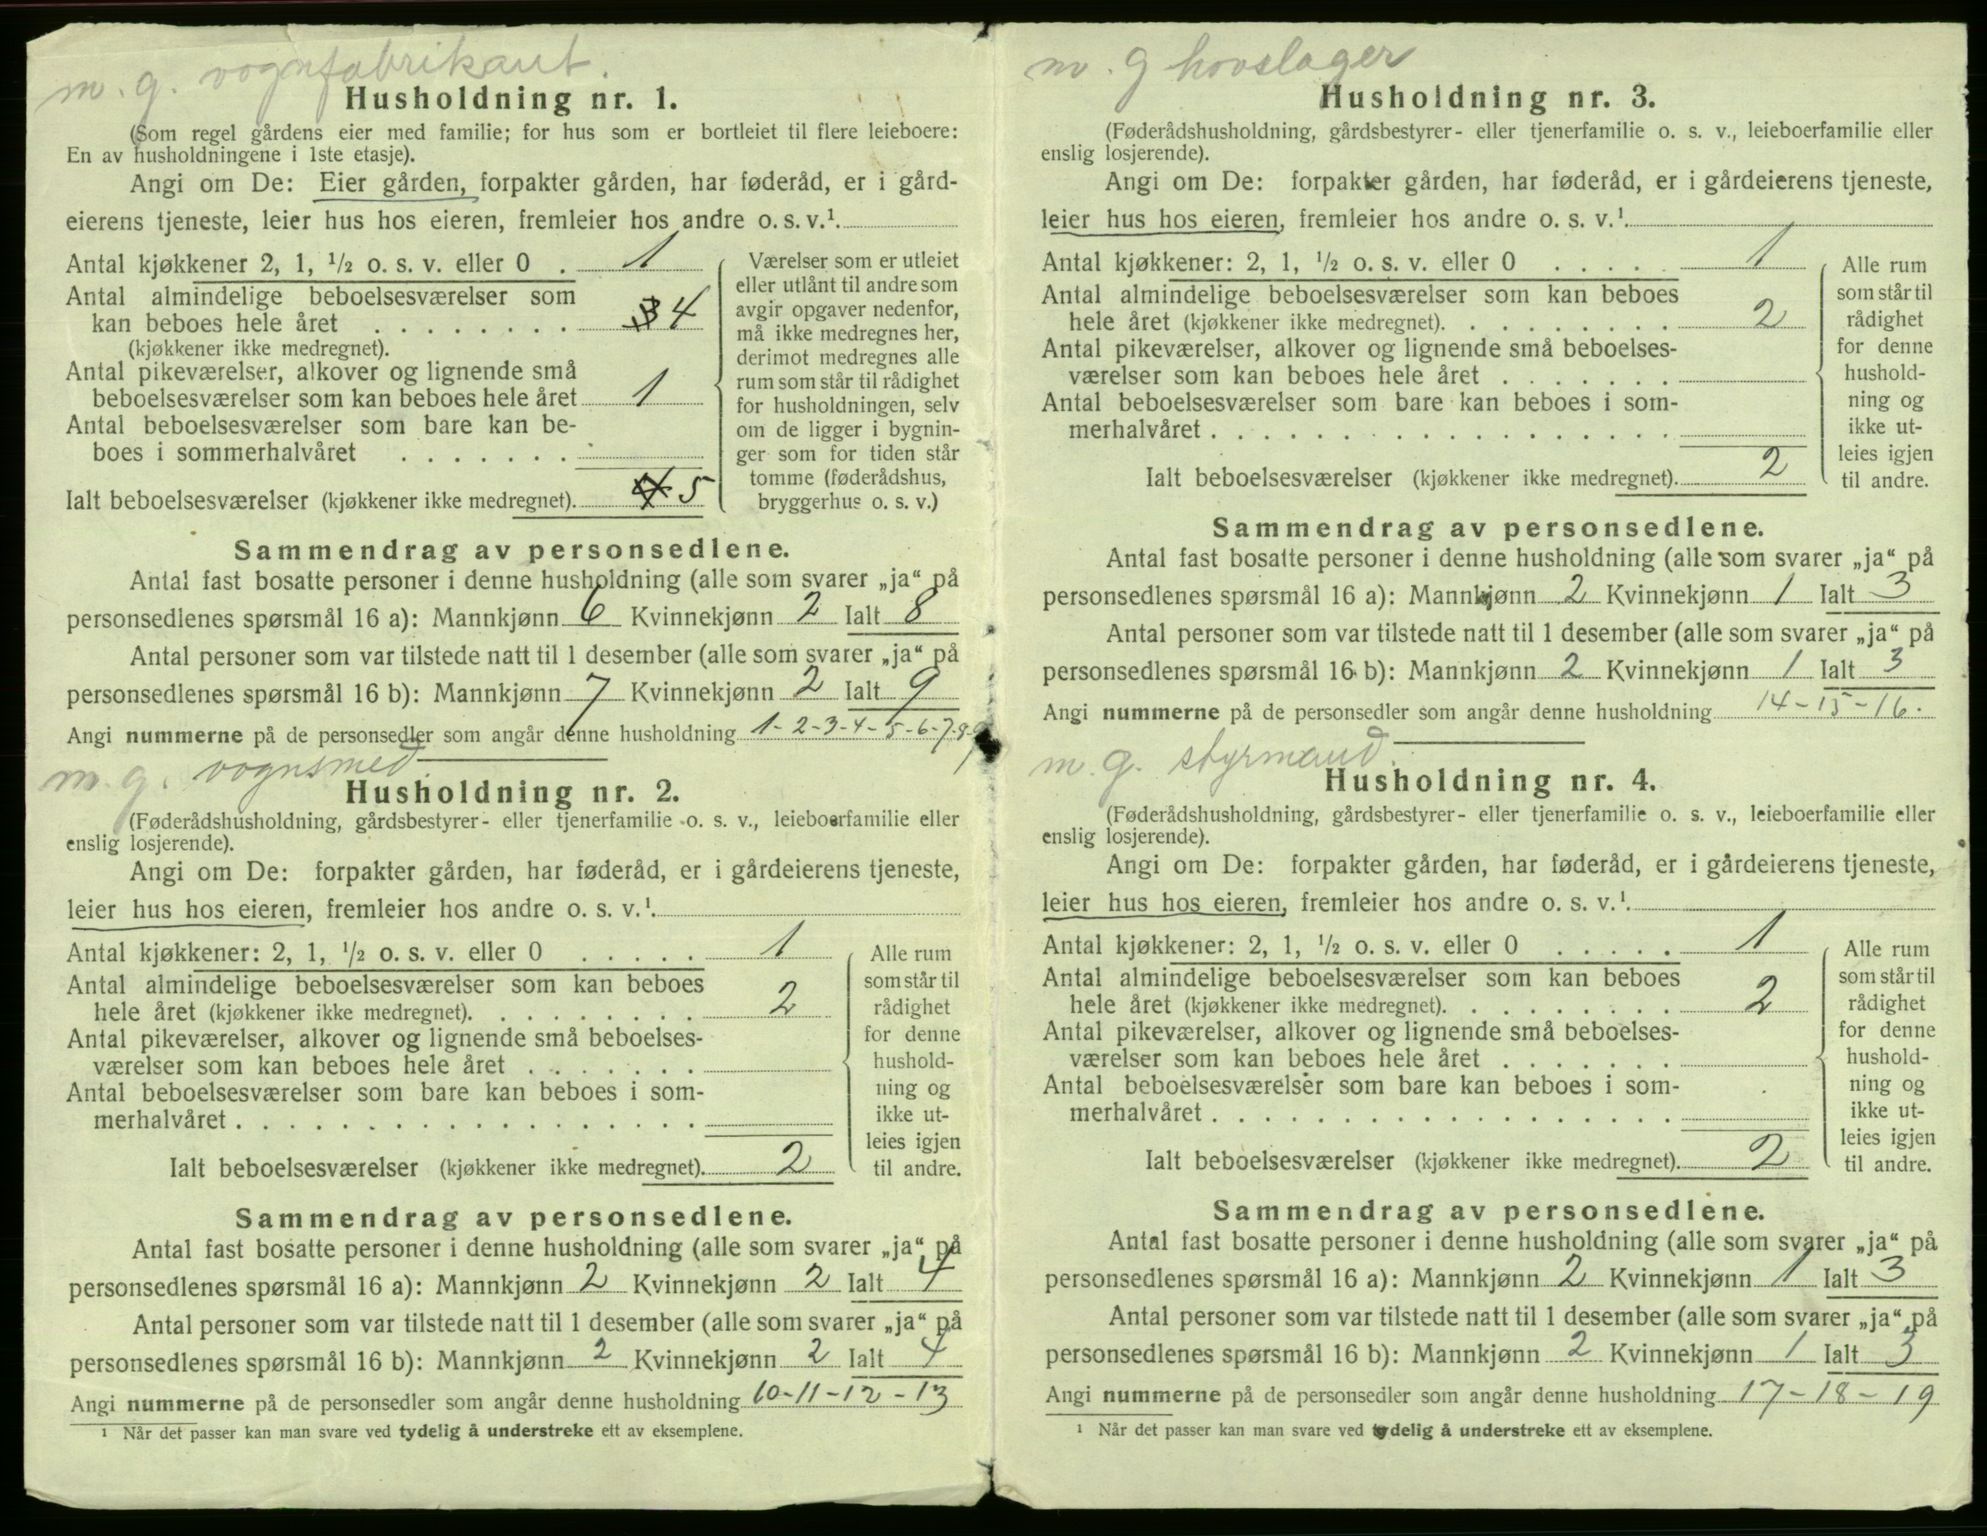 m. g. vognfabrikant.
Husholdning nr. 1.
(Som regel gårdens eier med familie; for hus som er bortleiet til flere leieboere:
En av husholdningene i 1ste etasje).
Angi om De: Eier gården, forpakter gården, har føderåd, er i gård-
eierens tjeneste, leier hus hos eieren, fremleier hos andre o. s. v.¹
Antal kjøkkener 2, 1, ½ o. s. v. eller 0 . 1
Antal almindelige beboelsesværelser som
kan beboes hele året . . . . . . . . 3 4
(kjøkkener ikke medregnet).
Antal pikeværelser, alkover og lignende små
beboelsesværelser som kan beboes hele året 1
Antal beboelsesværelser som bare kan be-
boes i sommerhalvåret . . . . . . .
Ialt beboelsesværelser (kjøkkener ikke medregnet). 4 5
Værelser som er utleiet
eller utlånt til andre som
avgir opgaver nedenfor,
må ikke medregnes her,
derimot medregnes alle
rum som står til rådighet
for husholdningen, selv
om de ligger i bygnin-
ger som for tiden står
tomme (føderådshus,
bryggerhus o. s. v.)
Sammendrag av personsedlene.
Antal fast bosatte personer i denne husholdning (alle som svarer „ja“ på
personsedlenes spørsmål 16 a): Mannkjønn 6 Kvinnekjønn 2 Ialt 8
Antal personer som var tilstede natt til 1 desember (alle som svarer „ja“ på
personsedlenes spørsmål 16 b): Mannkjønn 7 Kvinnekjønn 2 Ialt 9
Angi nummerne på de personsedler som angår denne husholdning 1-2-3-4-5-6-7-8-9
m. g. vognsmed.
Husholdning nr. 2.
(Føderådshusholdning, gårdsbestyrer- eller tjenerfamilie o. s. v., leieboerfamilie eller
enslig losjerende).
Angi om De: forpakter gården, har føderåd, er i gårdeierens tjeneste,
leier hus hos eieren, fremleier hos andre o. s. v.¹
Antal kjøkkener: 2, 1, ½ o. s. v. eller 0 . . . . . 1
Antal almindelige beboelsesværelser som kan beboes
hele året (kjøkkener ikke medregnet). . . . . . . . . 2
Antal pikeværelser, alkover og lignende små beboelses-
værelser som kan beboes hele året . . . . . . .
Antal beboelsesværelser som bare kan beboes i som-
merhalvåret . . . . . . . . . . . . . . . . . .
Ialt beboelsesværelser (kjøkkener ikke medregnet). 2
Alle rum
som står til
rådighet
for denne
hushold-
ning og
ikke ut-
leies igjen
til andre.
Sammendrag av personsedlene.
Antal fast bosatte personer i denne husholdning (alle som svarer „ja“ på
personsedlenes spørsmål 16 a): Mannkjønn 2 Kvinnekjønn 2 Ialt 4
Antal personer som var tilstede natt til 1 desember (alle som svarer „ja“ på
personsedlenes spørsmål 16 b): Mannkjønn 2 Kvinnekjønn 2 Ialt 4
Angi nummerne på de personsedler som angår denne husholdning 10-11-12-13
¹ Når det passer kan man svare ved tydelig å understreke ett av eksemplene.
m. g hovslager
Husholdning nr. 3.
(Føderådshusholdning, gårdsbestyrer- eller tjenerfamilie o. s. v., leieboerfamilie eller
enslig losjerende).
Angi om De: forpakter gården, har føderåd, er i gårdeierens tjeneste,
leier hus hos eieren, fremleier hos andre o. s. v.¹.
Antal kjøkkener: 2, 1, ½ o. s. v. eller 0 . . . . . 1
Antal almindelige beboelsesværelser som kan beboes
hele året (kjøkkener ikke medregnet). . . . . . . . . 2
Antal pikeværelser, alkover og lignende små beboelses-
værelser som kan beboes hele året . . . . . . .
Antal beboelsesværelser som bare kan beboes i som-
merhalvåret . . . . . . . . . . . . . . . . . .
Ialt beboelsesværelser (kjøkkener ikke medregnet). 2
Alle rum
som står til
rådighet
for denne
hushold-
ning og
ikke ut-
leies igjen
til andre.
Sammendrag av personsedlene.
Antal fast bosatte personer i denne husholdning (alle som svarer „ja“ på
personsedlenes spørsmål 16 a): Mannkjønn 2 Kvinnekjønn 1 Ialt 3
Antal personer som var tilstede natt til 1 desember (alle som svarer „ja“ på
personsedlenes spørsmål 16 b): Mannkjønn 2 Kvinnekjønn 1 Ialt 3
Angi nummerne på de personsedler som angår denne husholdning 14-15-16.
m. g. styrmand.
Husholdning nr. 4.
(Føderådshusholdning, gårdsbestyrer- eller tjenerfamilie o. s. v., leieboerfamilie eller
enslig losjerende).
Angi om De: forpakter gården, har føderåd, er i gårdeierens tjeneste,
leier hus hos eieren, fremleier hos andre o. s. v.¹.
Antal kjøkkener: 2, 1, ½ o. s. v. eller 0 . . . . . 1
Antal almindelige beboelsesværelser som kan beboes
hele året (kjøkkener ikke medregnet). . . . . . . . . 2
Antal pikeværelser, alkover og lignende små beboelses-
værelser som kan beboes hele året . . . . . . .
Antal beboelsesværelser som bare kan beboes i som-
merhalvåret . . . . . . . . . . . . . . . . . .
Ialt beboelsesværelser (kjøkkener ikke medregnet). 2
Alle rum
som står til
rådighet
for denne
hushold-
ning og
ikke ut-
leies igjen
til andre.
Sammendrag av personsedlene.
Antal fast bosatte personer i denne husholdning (alle som svarer „ja“ på
personsedlenes spørsmål 16 a): Mannkjønn 2 Kvinnekjønn 1 Ialt 3
Antal personer som var tilstede natt til 1 desember (alle som svarer „ja“ på
personsedlenes spørsmål 16 b): Mannkjønn 2 Kvinnekjønn 1 Ialt 3
Angi nummerne på de personsedler som angår denne husholdning 17-18-19
¹ Når det passer kan man svare ved tydelig å understreke ett av eksemplene.